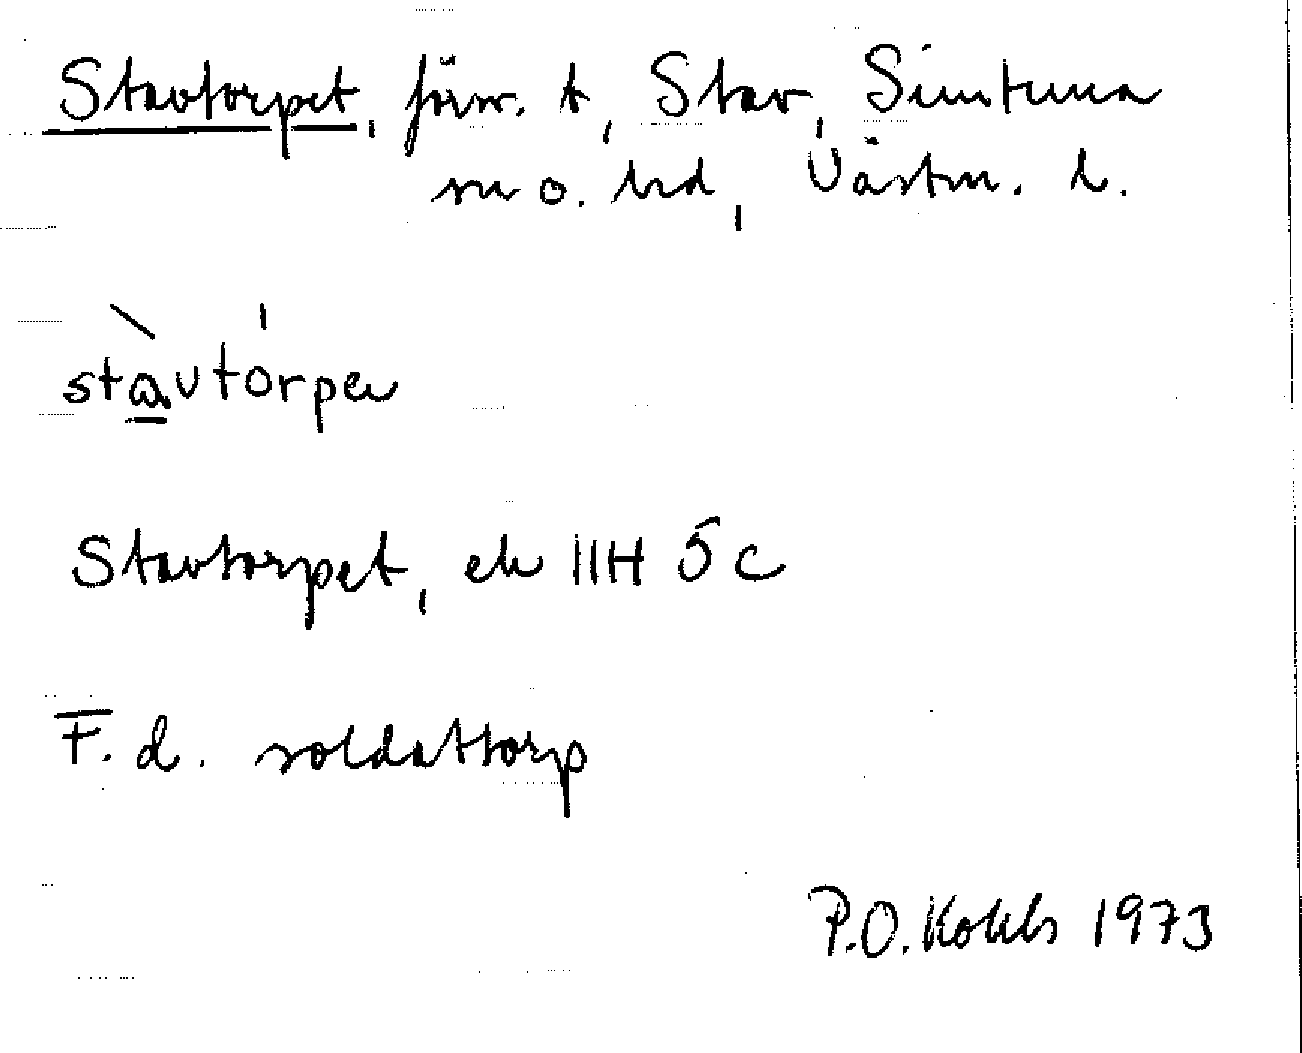 Stavtorpet, förr. t, Stav, Simtuna
sn o. hd, Västm. l.
stàvtórpeu
Stavtorpet, ek 11H 5c
F. d. soldattorp
P.O. 1973